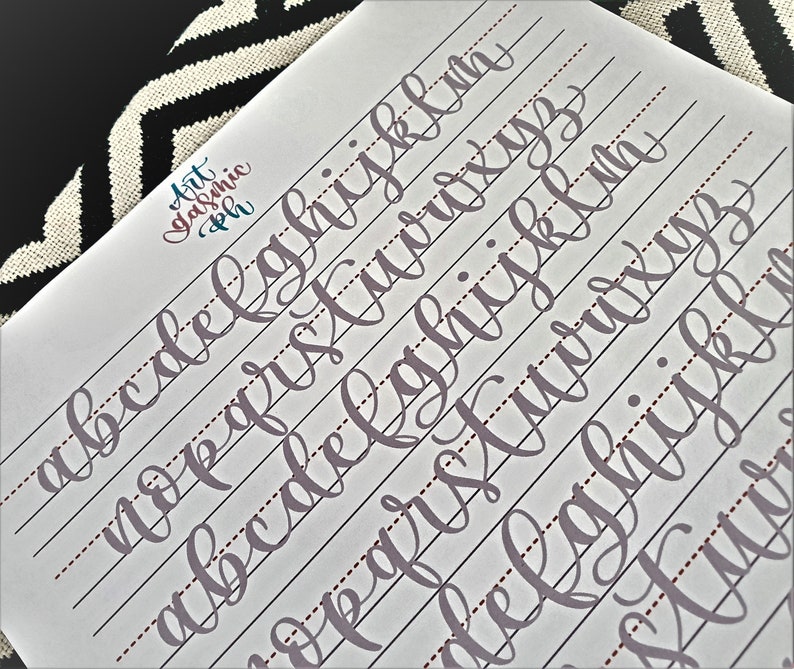 Art
gasmic
ph
abcdefghijklm
nopqrstuvwxyz
abcdefghijklm
nopqrstuvwxyz
defghijklm
stuvw